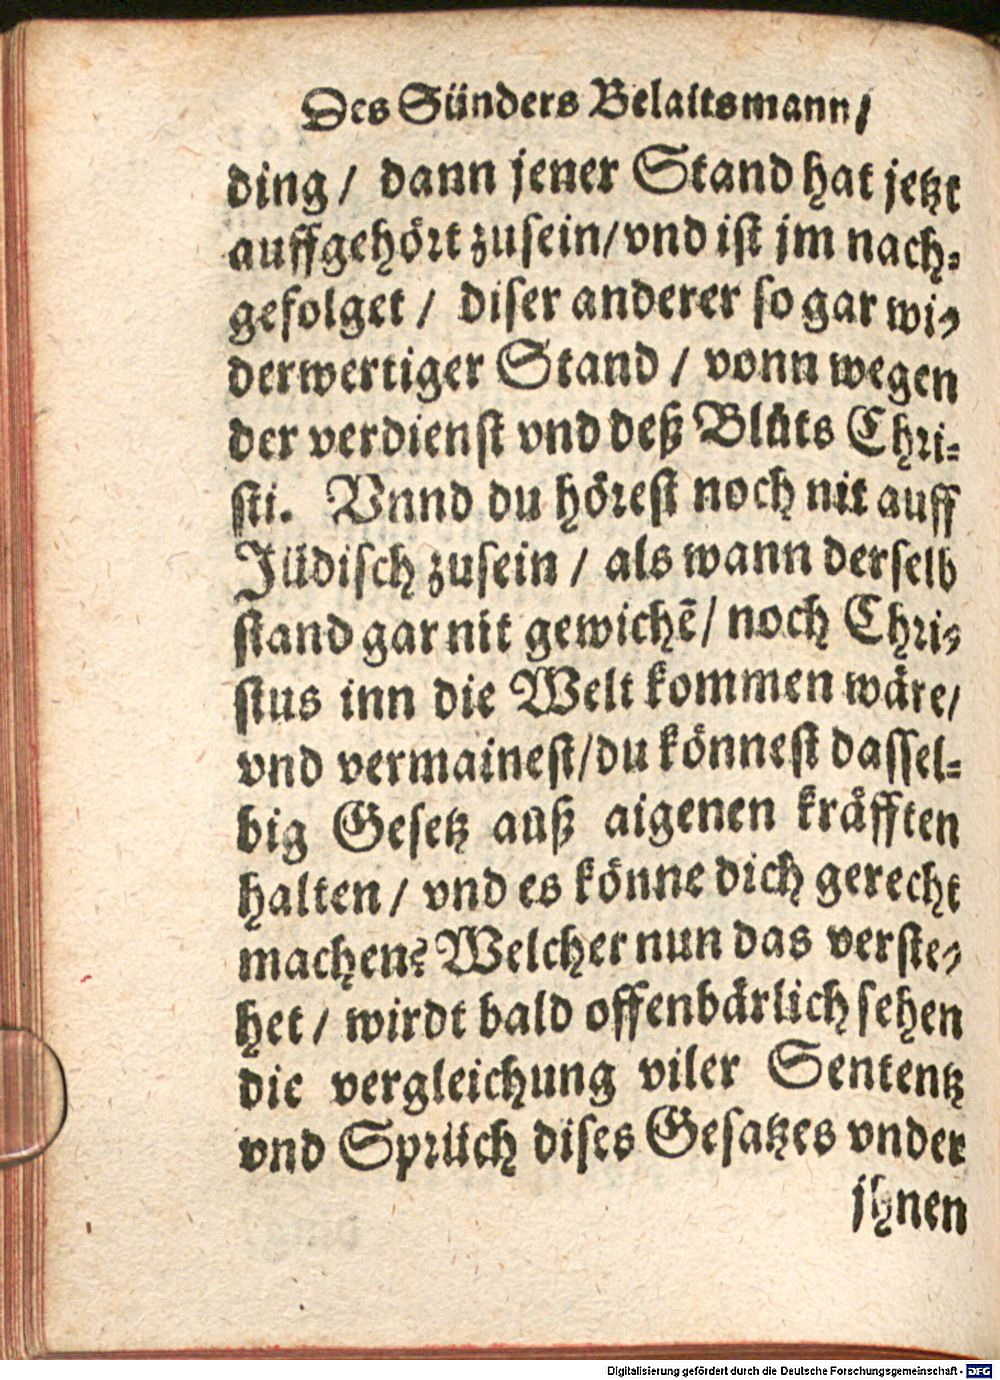 Des Sünders Belaitsmann/
ding / dann jener Stand hat jetzt
auffgehört zusein/vnd ist jm nach-
gefolget / diser anderer so gar wi-
derwertiger Stand / vonn wegen
der verdienst vnd deß Blůts Chri-
sti. Vnnd du hörest noch nit auff
Jüdisch zusein / als wann derselb
stand gar nit gewichẽ/ noch Chri-
stus inn die Welt kommen wäre/
vnd vermainest/du könnest dassel-
big Gesetz auß aigenen kräfften
halten / vnd es könne dich gerecht
machen? Welcher nun das verste-
het / wirdt bald offenbärlich sehen
die vergleichung viler Sententz
vnd Sprüch dises Gesatzes vnder
jhnen
Digitalisierung gefördert durch die Deutsche Forschungsgemeinschaft - DFG